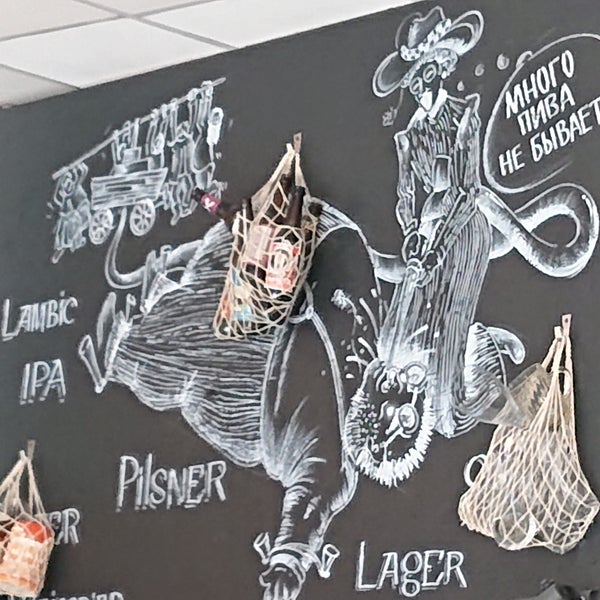 МНОГО
ПИВА
НЕ БЫВАЕТ
LAMBIC
IPA
PILSNER
LAGER